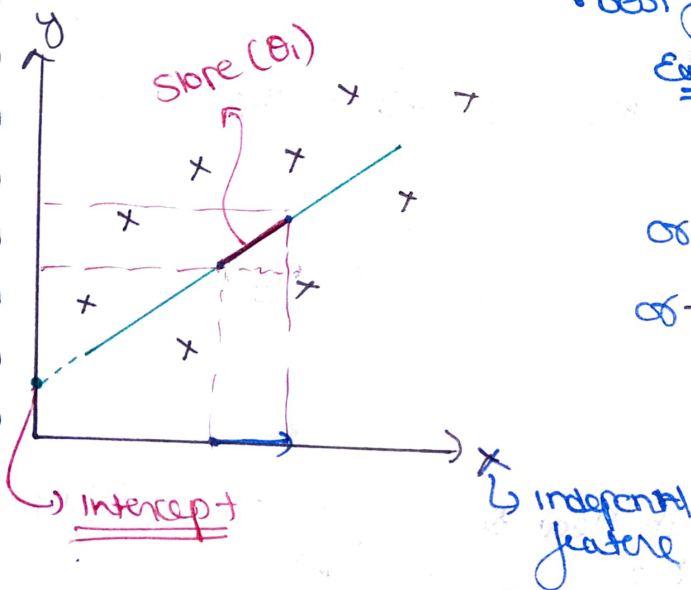 y
Slope (θ₁)
x
Intercept
independent
feature